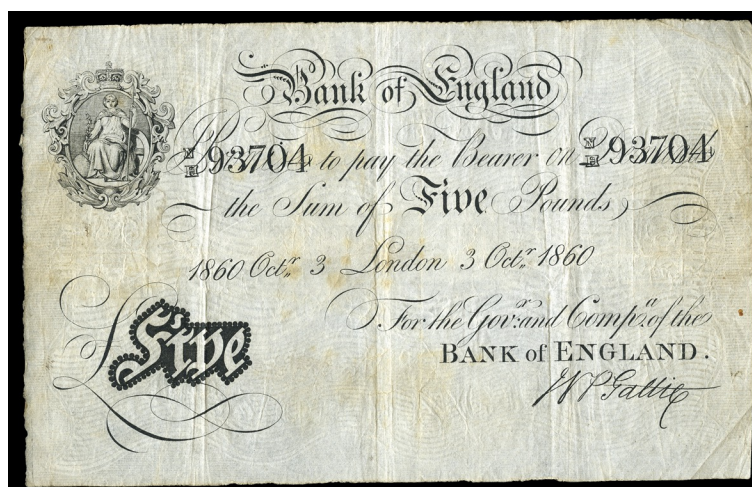 Bank of England
N/H 93704 to pay the Bearer on N/H 93704
the Sum of Five Pounds,
1860 Octr. 3 London 3 Octr. 1860
For the Govr. and Compa. of the
BANK of ENGLAND.
Five
W P Gattie